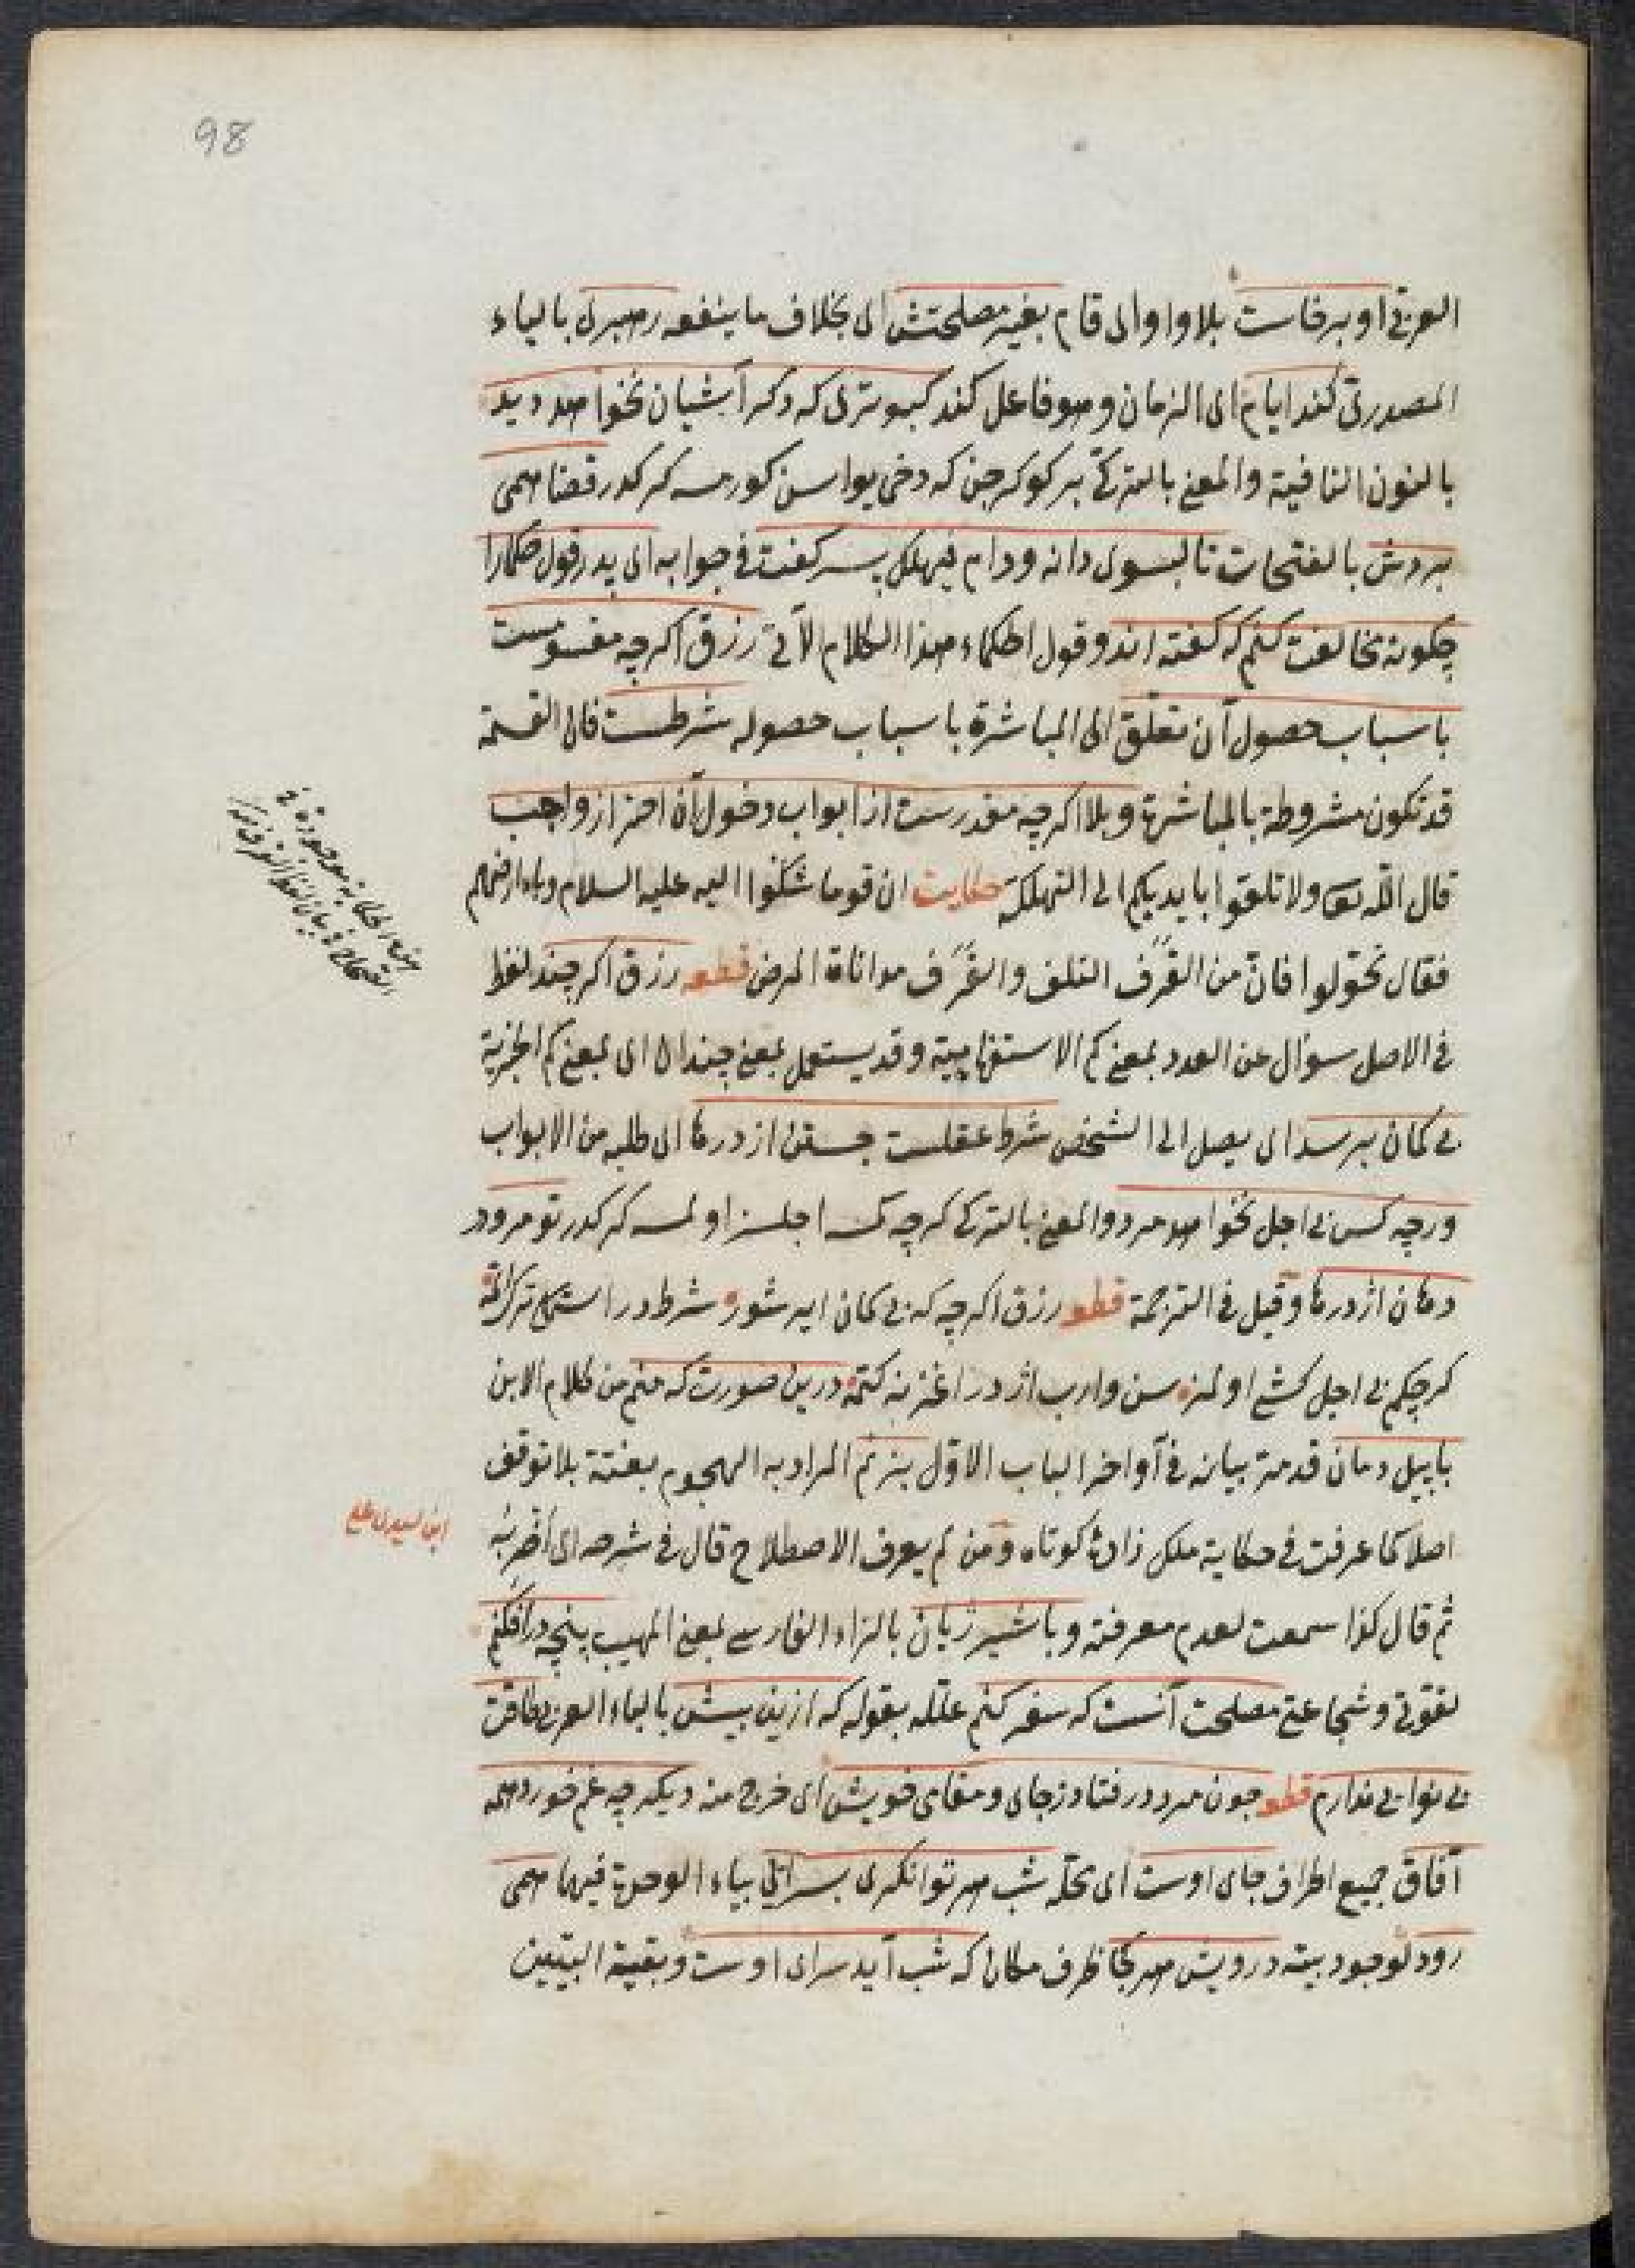 98
العربى او برخاست بلا واو اى قام بغير مصلحتش اى بخلاف ما ينفعه رهبرى بالياء
المصدرى كند ايام اى الزمان وهو فاعل كند كبوترى كه دكر آشيان نخواهد ديد
بالنون النافية والمعنى بالتركى بر كوكرجن كه دخى يواسن كورمسه كركدر قضا همى
بردش بالفتحات تا بسوى دانه ودام فيهلك پسر كفت فى جوابه اى پدر قول حكمارا
چكونه مخالفت كنم كه كفته اند وقول الحكماء هذا الكلام الآتى رزق اكرچه مقسومست
باسباب حصول آن تعلق اى المباشرة باسباب حصوله شرطست فان القسمة
قد تكون مشروطة بالمباشرة وبلا اكرچه مقدرست از ابواب دخول آن احتراز واجب
قال الله تعا ولا تلقوا بايديكم الى التهلكة حكايت ان قوما شكوا اليه عليه السلام وباء ارضهم
فقال تحولوا فان من القرف التلف والقرف مداناة المرض قطعه رزق اكر چند لفظ
فى الاصل سؤال عن العدد بمعنى كم الاستفهامية وقد يستعمل بمعنى چندان اى بمعنى كم الخبرية
بى كمان برسد اى يصل الى الشخص شرط عقلست جستن از درها اى طلبه من الابواب
ورچه كس بى اجل نخواهد مرد والمعنى بالتركى كرچه كمسه اجلسز اولمسه كركدر تو مرو در
دهان اژدرها وقيل فى الترجمة قطعه رزق اكرچه كه بى كمان ايرشور شرط در استمك
كرچكم بى اجل كشى اولمز سن وارب اژدر اغزنه كتمه درين صورت كه منم من كلام الابن
با پيل دمان قد مر بيانه فى آواخر الباب الاول بزنم المراد به الهجوم بغتة بلا توقف
اصلا كما عرفت فى حكاية ملك زادۀ كوتاه ومن لم يعرف الاصطلاح قال فى شرحه اى أضربه
ثم قال كذا سمعت لعدم معرفته وبا شير ژيان بالزاء الفارسى بمعنى المهيب پنجه درافكنم
لقوتى وشجاعتى مصلحت آنست كه سفر كنم علله بقوله كه ازين بيش بالباء العربى طاقت
بى نوايى ندارم قطعه چون مرد درفتاد ز جاى ومقام خويش اى خرج منه ديكر چه غم خورد همه
آفاق جميع اطراف جاى اوست اى محله شب هر توانكرى بسرايى بياء الوحدة فيهما همى
رود لوجود بيته درويش هر كجا ظرف مكان كه شب آيد سراى اوست وبقية البيتين
هذه الحكاية موجودة فى
ابن سيدى على